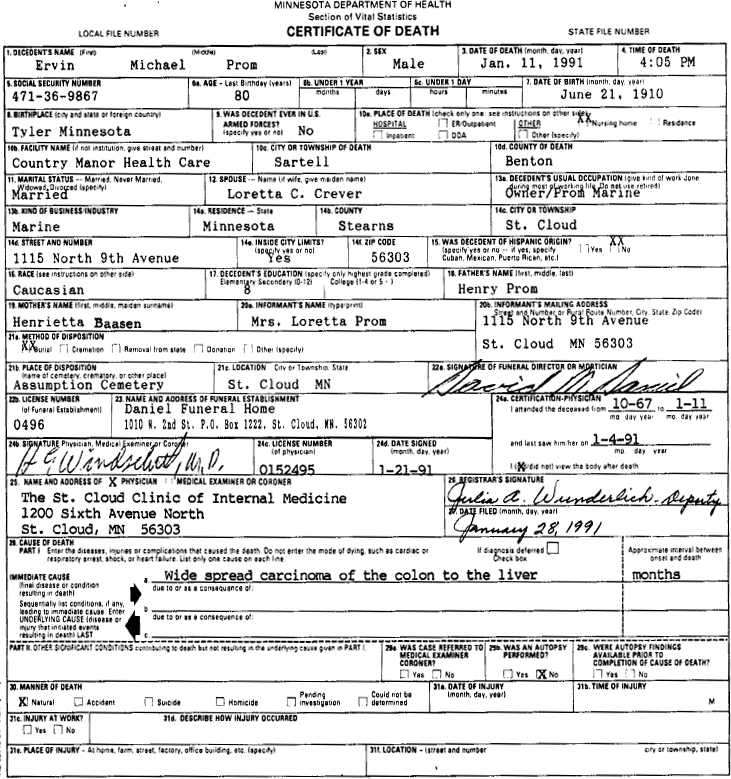 MINNESOTA DEPARTMENT OF HEALTH
Section of Vital Statistics
LOCAL FILE NUMBER CERTIFICATE OF DEATH STATE FILE NUMBER
1. DECEDENT'S NAME (First) (Middle) (Last) 2. SEX 3. DATE OF DEATH (month, day, year) 4. TIME OF DEATH
Ervin Michael Prom Male Jan. 11, 1991 4:05 PM
5. SOCIAL SECURITY NUMBER 6a. AGE - Last Birthday (years) 6b. UNDER 1 YEAR 6c. UNDER 1 DAY 7. DATE OF BIRTH (month, day, year)
471-36-9867 80 months days hours minutes June 21, 1910
8. BIRTHPLACE (city and state or foreign country) 9. WAS DECEDENT EVER IN U.S. ARMED FORCES? (specify yes or no) 10a. PLACE OF DEATH (check only one: see instructions on other side)
Tyler Minnesota No HOSPITAL Inpatient ER/Outpatient DOA OTHER XX Nursing home Residence Other (specify)
10b. FACILITY NAME (if not institution, give street and number) 10c. CITY OR TOWNSHIP OF DEATH 10d. COUNTY OF DEATH
Country Manor Health Care Sartell Benton
11. MARITAL STATUS - Married, Never Married, Widowed, Divorced (specify) 12. SPOUSE - Name (if wife, give maiden name) 13a. DECEDENT'S USUAL OCCUPATION (give kind of work done during most of working life. Do not use retired)
Married Loretta C. Crever Owner/Prom Marine
13b. KIND OF BUSINESS/INDUSTRY 14a. RESIDENCE - State 14b. COUNTY 14c. CITY OR TOWNSHIP
Marine Minnesota Stearns St. Cloud
14d. STREET AND NUMBER 14e. INSIDE CITY LIMITS? (specify yes or no) 14f. ZIP CODE 15. WAS DECEDENT OF HISPANIC ORIGIN? (specify yes or no - if yes, specify Cuban, Mexican, Puerto Rican, etc.) Yes XX No
1115 North 9th Avenue Yes 56303
16. RACE (see instructions on other side) 17. DECEDENT'S EDUCATION (specify only highest grade completed) Elementary Secondary (0-12) College (1-4 or 5 -) 18. FATHER'S NAME (first, middle, last)
Caucasian 8 Henry Prom
19. MOTHER'S NAME (first, middle, maiden surname) 20a. INFORMANT'S NAME (type/print) 20b. INFORMANT'S MAILING ADDRESS
Street and Number or Rural Route Number, City, State, Zip Code)
Henrietta Baasen Mrs. Loretta Prom 1115 North 9th Avenue
St. Cloud MN 56303
21a. METHOD OF DISPOSITION
XX Burial Cremation Removal from state Donation Other (specify)
21b. PLACE OF DISPOSITION (name of cemetery, crematory, or other place) 21c. LOCATION City or Township, State 22a. SIGNATURE OF FUNERAL DIRECTOR OR MORTICIAN
Assumption Cemetery St. Cloud MN David M. Daniel
22b. LICENSE NUMBER (of Funeral Establishment) 23. NAME AND ADDRESS OF FUNERAL ESTABLISHMENT 24a. CERTIFICATION-PHYSICIAN
Daniel Funeral Home I attended the deceased from 10-67 to 1-11
0496 1010 W. 2nd St. P.O. Box 1222, St. Cloud, MN. 56302 mo. day year mo. day year
and last saw him-her on 1-4-91
mo. day year
24b. SIGNATURE Physician, Medical Examiner or Coroner 24c. LICENSE NUMBER (of physician) 24d. DATE SIGNED (month, day, year)
M.D. 0152495 1-21-91 I (X did not) view the body after death.
25. NAME AND ADDRESS OF X PHYSICIAN MEDICAL EXAMINER OR CORONER 26. REGISTRAR'S SIGNATURE
The St. Cloud Clinic of Internal Medicine Julia A. Wunderlich - Deputy
1200 Sixth Avenue North 27. DATE FILED (month, day, year)
St. Cloud, MN 56303 January 28, 1991
28. CAUSE OF DEATH
PART I Enter the diseases, injuries or complications that caused the death. Do not enter the mode of dying, such as cardiac or respiratory arrest, shock, or heart failure. List only one cause on each line. If diagnosis deferred Check box Approximate interval between onset and death
IMMEDIATE CAUSE a. Wide spread carcinoma of the colon to the liver months
(final disease or condition resulting in death) due to or as a consequence of:
Sequentially list conditions, if any, leading to immediate cause. Enter b.
UNDERLYING CAUSE (disease or injury that initiated events due to or as a consequence of:
resulting in death) LAST c.
PART II. OTHER SIGNIFICANT CONDITIONS contributing to death but not resulting in the underlying cause given in PART I. 29a. WAS CASE REFERRED TO MEDICAL EXAMINER CORONER? Yes No 29b. WAS AN AUTOPSY PERFORMED? Yes X No 29c. WERE AUTOPSY FINDINGS AVAILABLE PRIOR TO COMPLETION OF CAUSE OF DEATH? Yes No
30. MANNER OF DEATH 31a. DATE OF INJURY (month, day, year) 31b. TIME OF INJURY
X Natural Accident Suicide Homicide Pending investigation Could not be determined M
31c. INJURY AT WORK? 31d. DESCRIBE HOW INJURY OCCURRED
Yes No
31e. PLACE OF INJURY - At home, farm, street, factory, office building, etc. (specify) 31f. LOCATION - (street and number city or township, state)